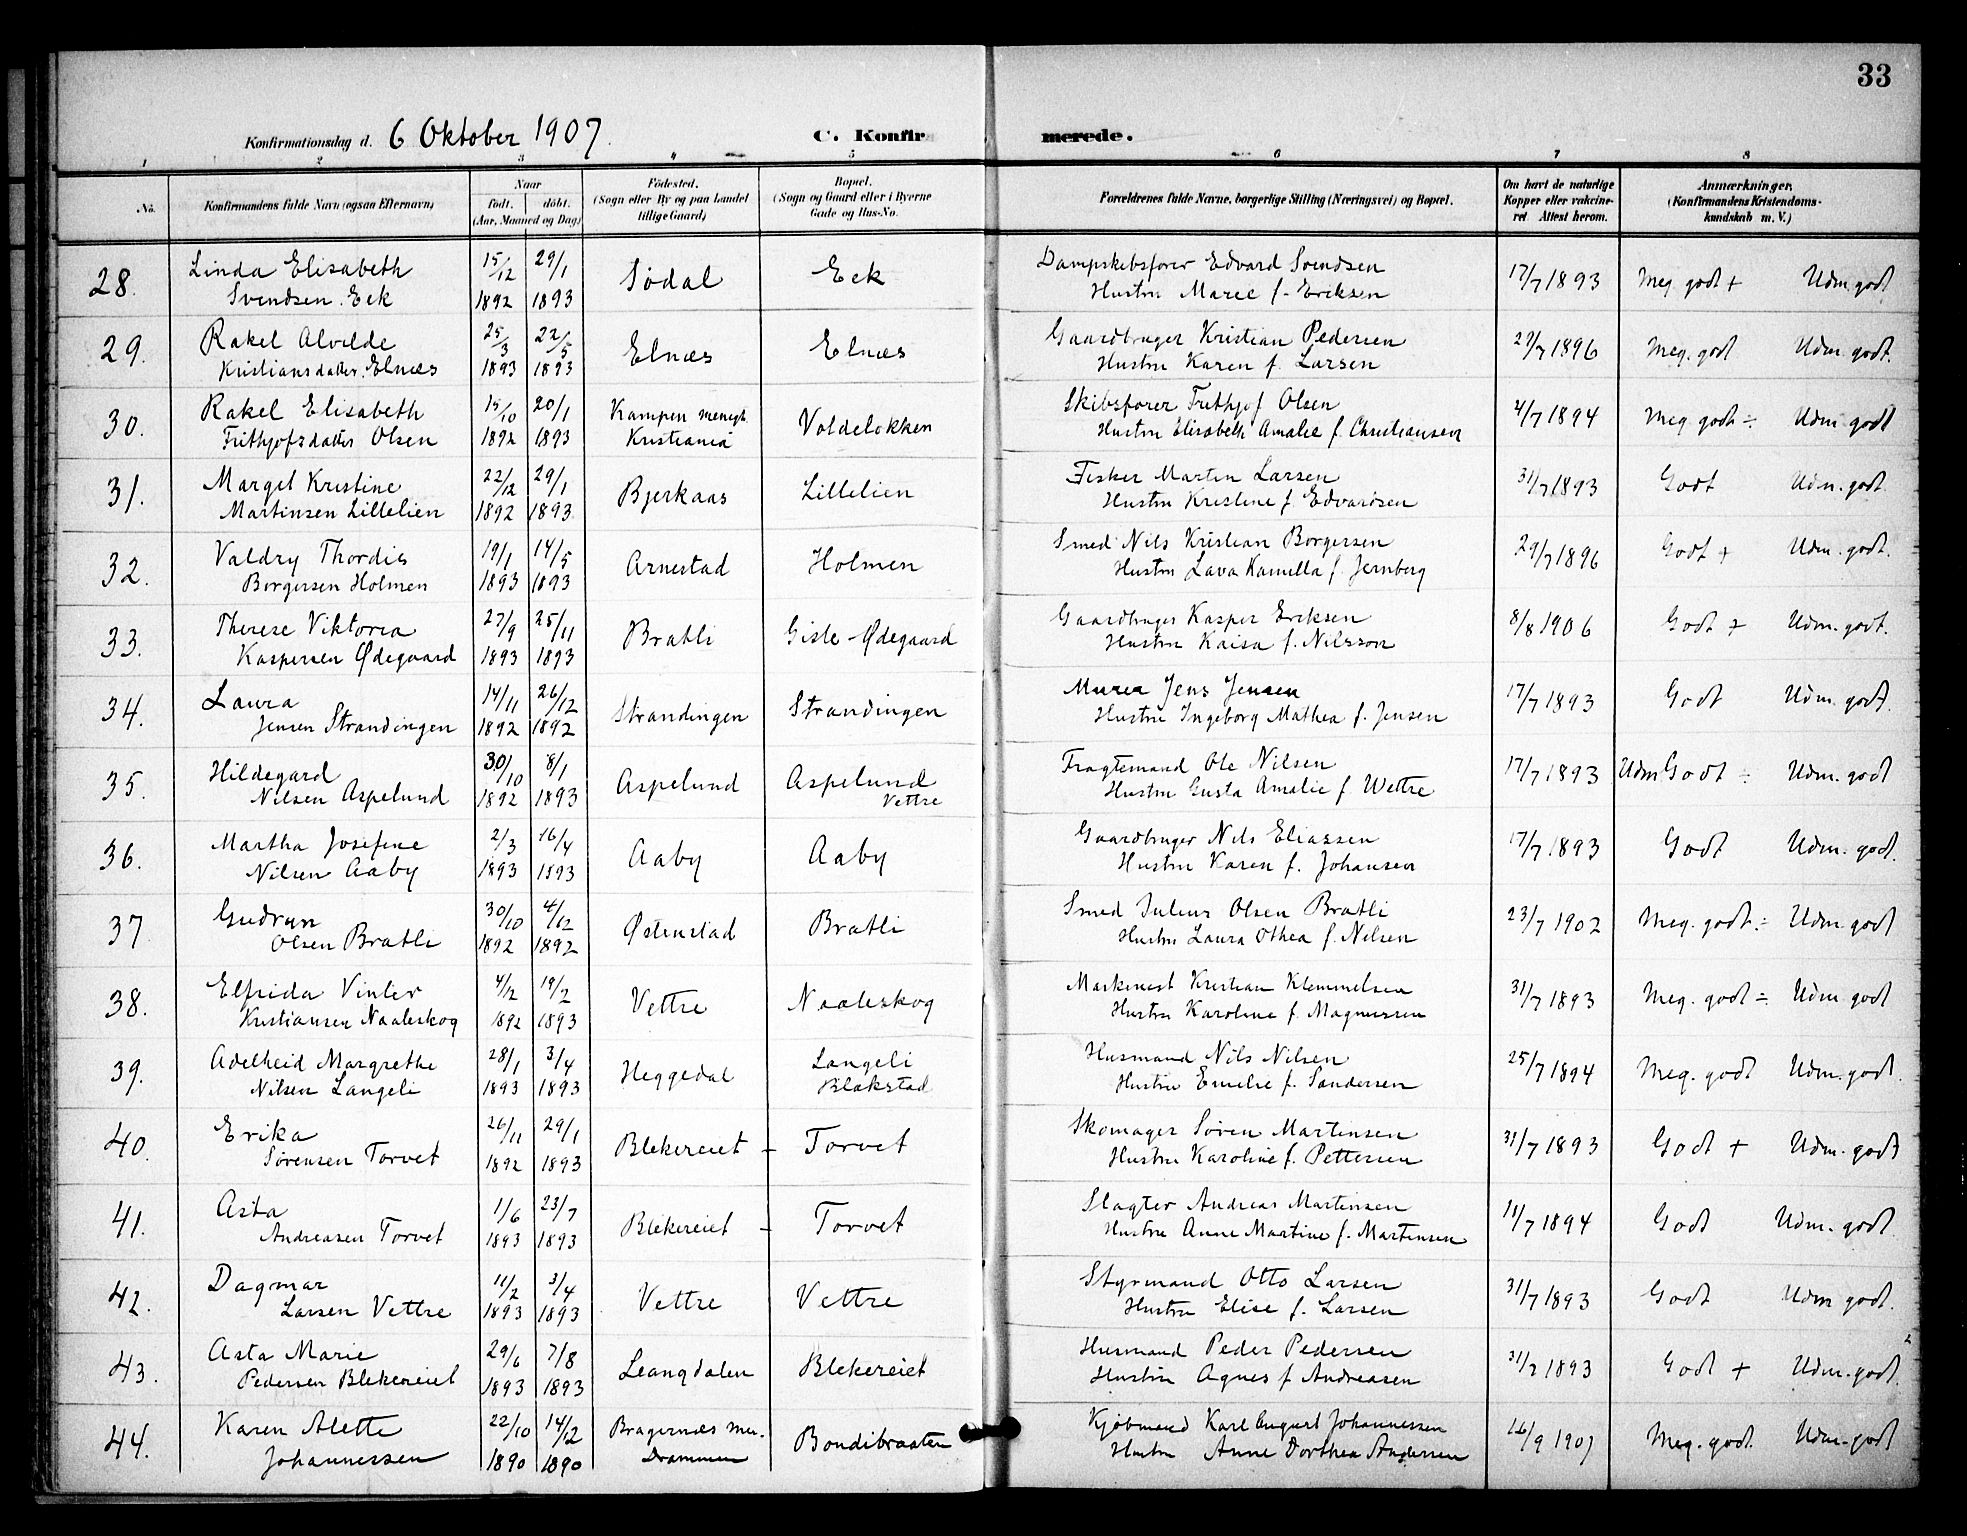 33
Konfirmationsdag d. 6 Oktober 1907. C. Konfirmerede.
1 2 3 4 5 6 7 8
No. Konfirmandens fulde Navn (ogsaa Efternavn). Naar født. døbt. (Aar, Maaned og Dag) Fødested. (Sogn eller By og paa Landet tillige Gaard) Bopæl. (Sogn og Gaard eller i Byerne Gade og Hus-No. Forældrenes fulde Navne, borgerlige Stilling (Næringsvei) og Bopæl. Om havt de naturlige Kopper eller vakcineret Attest herom. Anmærkninger. (Konfirmandens Kristendomskundskab m. V.)
28. Linda Elisabeth 15/12 29/1 Sødal Eek Dampskibsfører Edvard Svendsen 17/7 1893 Meg. godt + Udm. godt
Svendsen Eek 1892 1893 Hustru Maree f. Ericksen
29. Rakel Alvilde 25/3 22/5 Elnæs Elnæs Gaardbruger Kristian Pedersen 29/7 1896 Meg. godt Udm. godt.
Kristiansdatter Elnæs 1893 1893 Hustru Karen f. Larsen
30. Rakel Elisabeth 15/10 20/1 Kampen menigh. Voldeløkken Skibsfører Frithjof Olsen 4/7 1894 Meg. godt ÷ Udm. godt
Frithjofsdatter Olsen 1892 1893 Kristiania Hustru Elisabeth Amalie f. Christiansen
31. Margit Kristine 22/12 29/1 Bjerkaas Lillelien Fisker Martin Larsen 31/7 1893 Godt Udm. godt.
Martinsen Lillelien 1892 1893 Hustru Kristine f. Edvardsen
32. Valdry Thordis 19/1 14/5 Arnestad Holmen Smed Nils Kristian Borgersen 29/7 1896 Godt + Udm. godt.
Borgersen Holmen 1893 1893 Hustru Lava Kamilla f. Jernberg
33. Therese Viktoria 27/9 25/11 Bratli Gisle-Ødegaard Gaardbruger Kasper Ericksen 8/8 1906 Godt + Udm. godt.
Kaspersen Ødegaard 1893 1893 Hustru Kaisa f. Nilsson
34. Laura 14/11 26/12 Strandingen Strandingen Murer Jens Jensen 17/7 1893 Godt Udm. godt.
Jensen Strandingen 1892 1892 Hustru Ingeborg Mathea f. Jensen
35. Hildegard 30/10 8/1 Aspelund Aspelund Fragtemand Ole Nilsen 17/7 1893 Udm Godt ÷ Udm. godt
Nilsen Aspelund 1892 1893 Vettre Hustru Gusta Amalie f. Wettre
36. Martha Josefine 2/3 16/4 Aaby Aaby Gaardbruger Nils Eliassen 17/7 1893 Godt Udm. god.
Nilsen Aaby 1893 1893 Hustru Karen f. Johansen
37 Gudrun 30/10 4/12 Østenstad Bratli Smed Julius Olsen Bratli 23/7 1902 Meg. godt ÷ Udm. godt
Olsen Bratli 1892 1892 Hustru Laura Othea f. Nilsen
38. Elfrida Vinter 4/12 19/2 Vettre Naaleskog Maskinist Kristian Klemmetsen 31/7 1893 Meg. godt ÷ Udm. godt
Kristiansen Naaleskog 1892 1893 Hustru Karoline f. Magnussen
39. Adelheid Margrethe 28/1 3/4 Heggedal Langeli Husmand Nils Nilsen 25/7 1894 Meg. godt Udm. godt.
Nilsen Langeli 1893 1893 Blakstad Hustru Emilie f. Sandersen
40. Erika 26/11 29/1 Blekereiet – Torvet Skomager Søren Martinsen 31/7 1893 Godt + Udm. godt
Sørensen Torvet 1892 1893 Hustru Karoline f. Pettersen
41. Asta 1/6 23/7 Blekereiet – Torvet Slagter Andreas Martinsen 11/7 1894 Godt Udm. godt
Andreasen Torvet 1893 1893 Hustru Anne Martine f. Martinsen
42. Dagmar 11/2 3/4 Vettre Vettre Styrmand Otto Larsen 31/7 1893 Godt Udm godt.
Larsen Vettre 1893 1893 Hustru Elise f. Larsen
43. Asta Marie 29/6 7/8 Leangdalen Blekereiet Husmand Peder Pedersen 31/7 1893 Godt + Udm. godt.
Pedersen Blekereiet 1893 1893 Hustru Agnes f Andreasen
44. Karen Alette 22/10 14/12 Bragernæs me. Bondibraaten Kjøbmand Karl August Johannessen 16/9 1907 Meg. godt. Udm. godt
Johannessen 1890 1890 Drammen Hustru Anne Dorthea Andersen